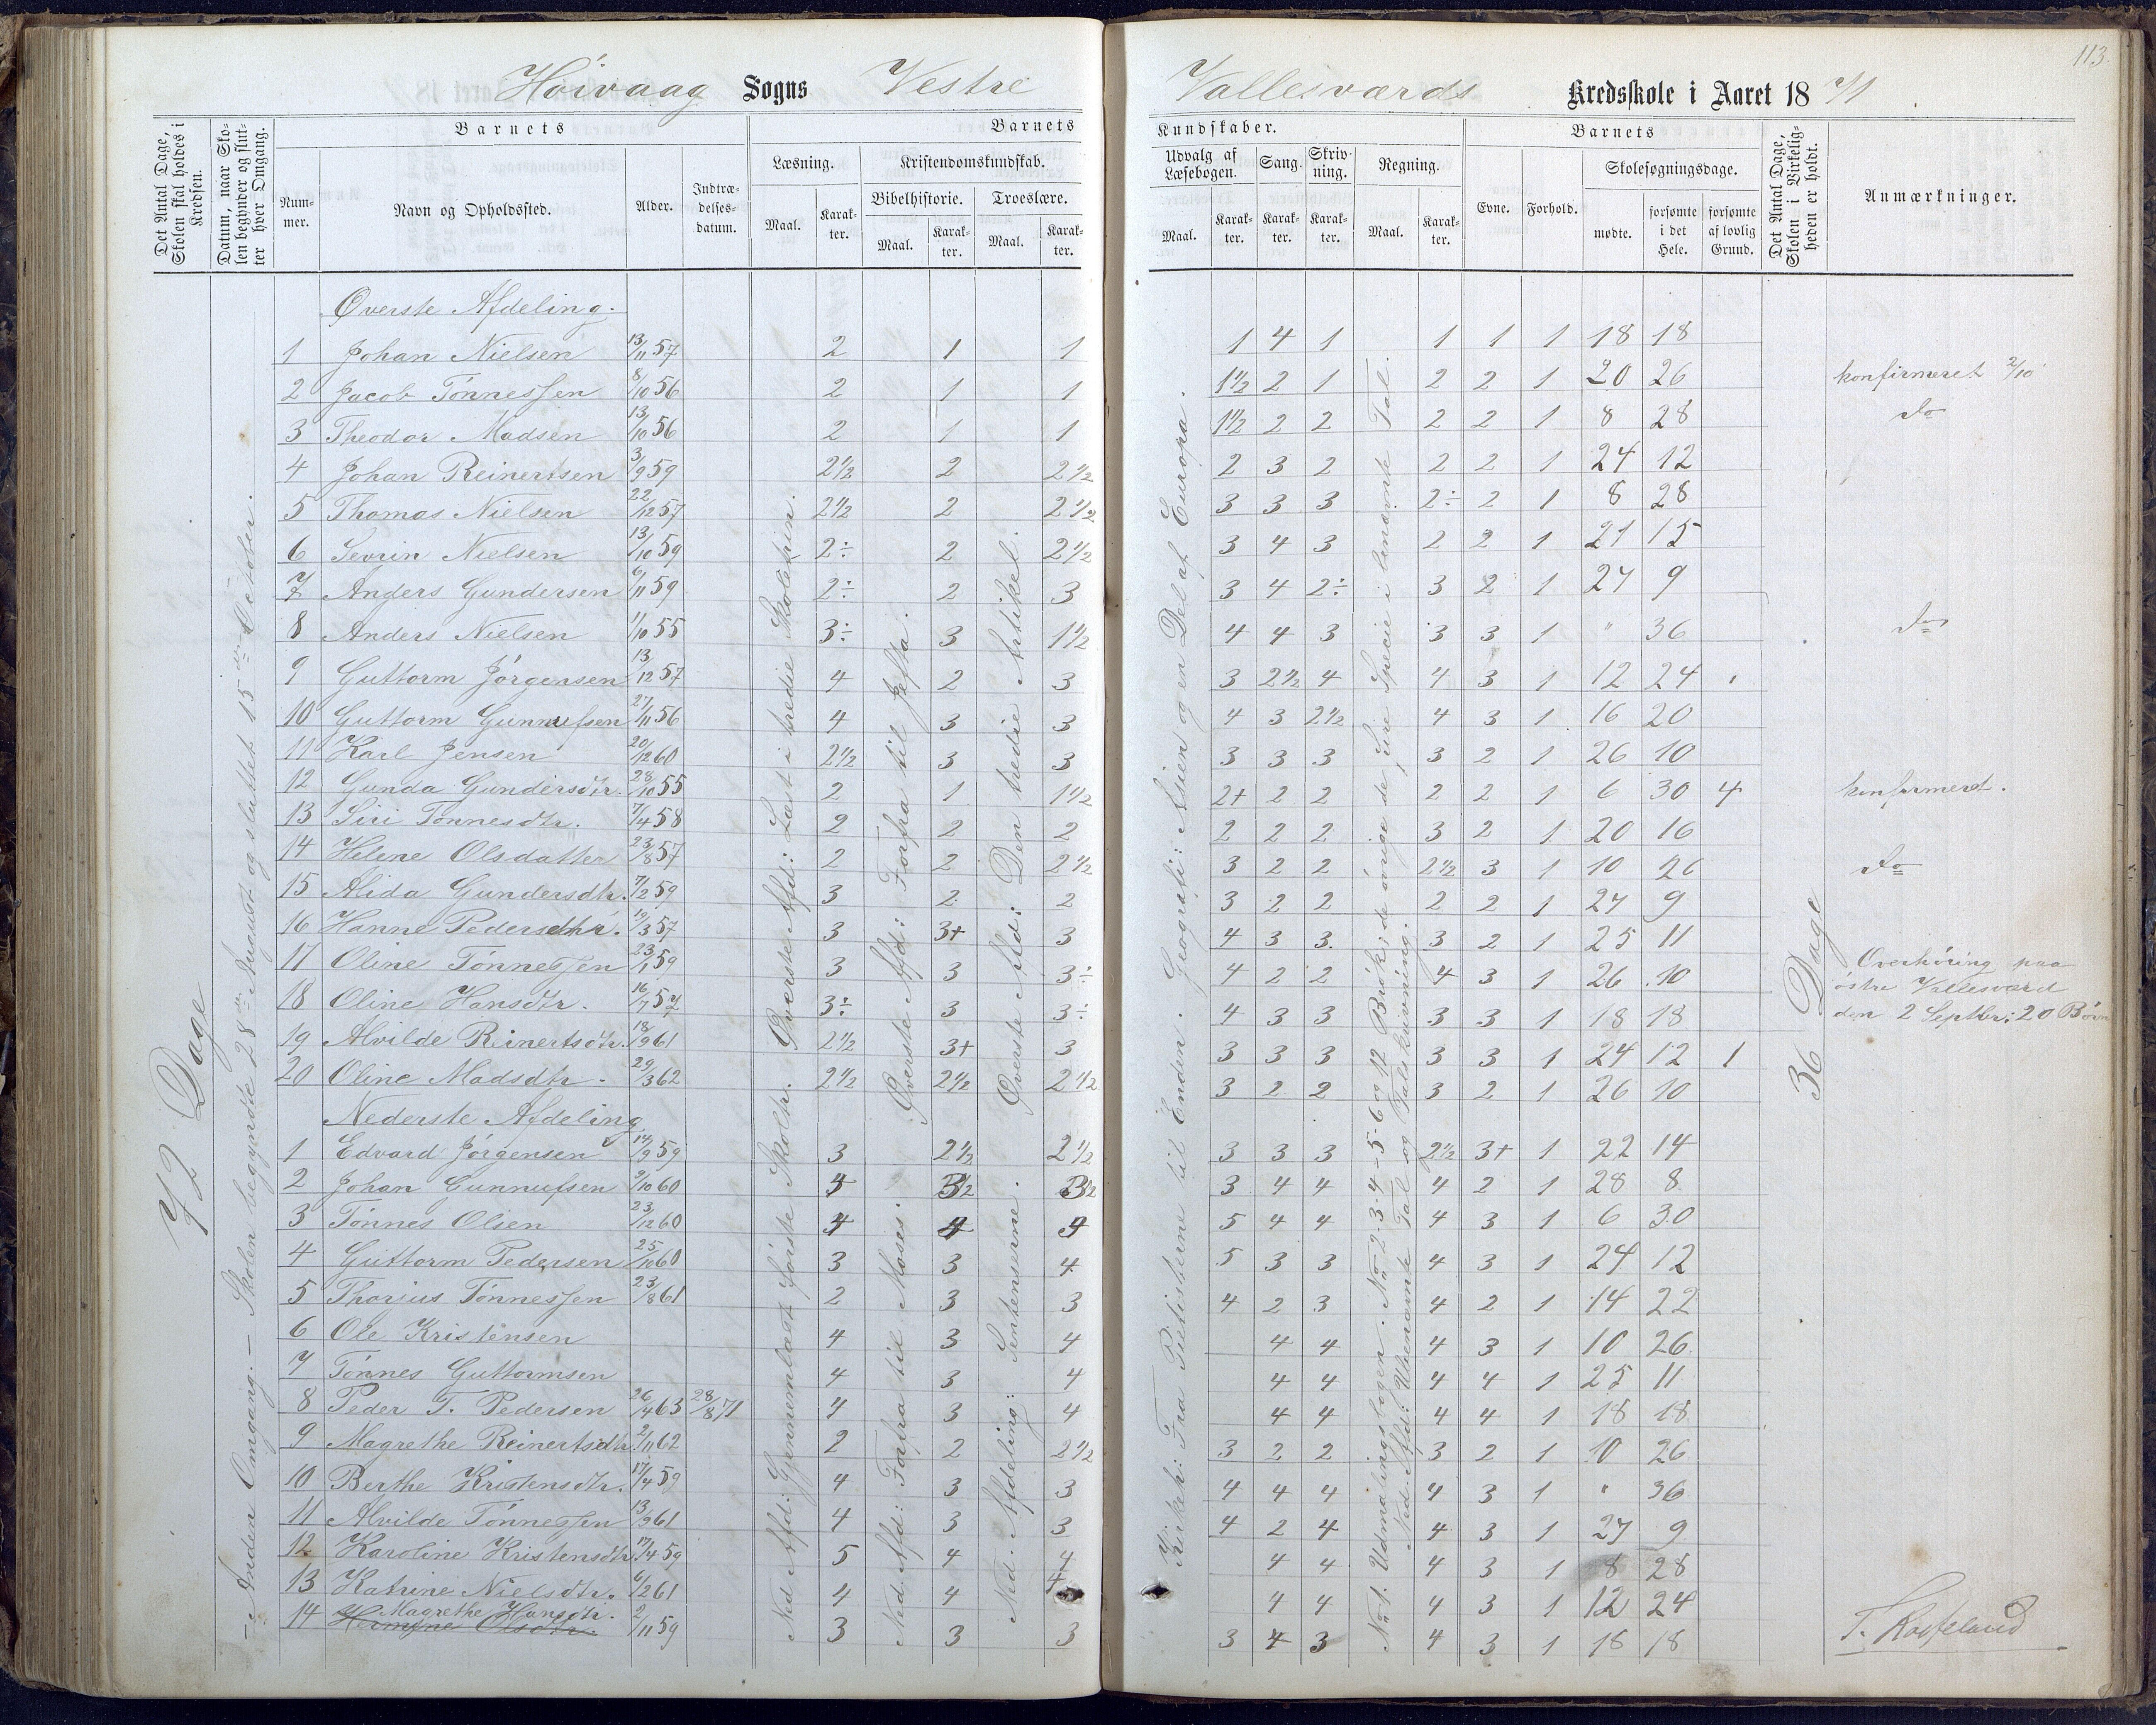 113
Høivaag Sogns Vestre Vallesværds Kredsskole i Aaret 1871
Det Antal Dage, Skolen skal holdes i Kredsen.
Datum, naar Skolen begynder og slutter hver Omgang.
Barnets
Nummer.
Navn og Opholdssted.
Alder.
Indtrædelsesdatum.
Barnets Kundskaber.
Læsning.
Maal.
Karakter.
Kristendomskundskab.
Bibelhistorie.
Maal.
Karakter.
Troeslære.
Maal.
Karakter.
Udvalg af Læsebogen.
Maal.
Karakter.
Sang.
Karakter.
Skrivning.
Karakter.
Regning.
Maal.
Karakter.
Barnets
Evne.
Forhold.
Skolesøgningsdage.
mødte.
forsømte i det Hele.
forsømte af lovlig Grund.
Det Antal Dage, Skolen i Virkeligheden er holdt.
Anmærkninger.
72 Dage
Anden Omgang. — Skolen begyndte 28de August og sluttet 15de October.
Øverste Afd: Læst i tredie Skoletrin.
Ned. Afd: Gjennemlæst første Skoletr.
Øverste Afd: Forfra til Jefta.
Ned. Afd: Forfra til Moses.
Øverste Afd: Den tredie Artikel.
Ned. Afdeling: Sentensurne.
Kirkeh: Fra Pietisterne til Enden. Geografi: Asien og en Del af Europa.
No 1. Udmaalingsbogen. No 2-3-4-5-6 og 12 Brøk; de øvrige de fire Specie i benævnte Tal.
Ned. Afd: Ubenævnte Tal og Talskrivning.
36 Dage
Øverste Afdeling.
1 Johan Nielsen 13/11 57 2 1 1 1 4 1 1 1 1 18 18
2 Jacob Tønnessen 8/10 56 2 1 1 1 1/2 2 1 2 2 1 20 26 konfirmeret 2/10
3 Theodor Madsen 13/10 56 2 1 1 1 1/2 2 2 2 2 1 8 28 do
4 Johan Reinertsen 3/9 59 2 1/2 2 2 1/2 2 3 2 2 2 1 24 12
5 Thomas Nielsen 22/12 57 2 1/2 2 2 1/2 3 3 3 2÷ 2 1 8 28
6 Sevrin Nielsen 13/10 59 2÷ 2 2 1/2 3 4 3 2 2 1 21 15
7 Anders Gundersen 6/11 59 2÷ 2 3 3 4 2÷ 3 2 1 27 9
8 Anders Nielsen 11/10 55 3÷ 3 1 1/2 4 4 3 3 3 1 " 36 do
9 Guttorm Jørgensen 13/12 57 4 2 3 3 2 1/2 4 4 3 1 12 24
10 Guttorm Gunnufsen 27/11 56 4 3 3 4 3 2 1/2 4 3 1 16 20
11 Karl Jensen 20/12 60 2 1/2 3 3 3 3 3 3 2 1 26 10
12 Gunda Gundersdtr. 28/10 55 2 1 1 1/2 2+ 2 2 2 2 1 6 30 4 konfirmeret.
13 Siri Tønnesdtr. 7/4 58 2 2 2 2 2 2 3 2 1 20 16
14 Helene Olsdatter 23/8 57 2 2 2 1/2 3 2 2 2 1/2 3 1 10 26 do
15 Alida Gundersdtr. 7/2 59 3 2 2 3 2 2 2 2 1 27 9
16 Hanne Pedersdtr. 19/3 57 3 3+ 3 4 3 3 3 2 1 25 11
17 Oline Tønnessen 23/1 59 3 3 3÷ 4 2 2 4 3 1 26 10
18 Oline Hansdtr. 16/7 57 3÷ 3 3÷ 4 3 3 3 3 1 18 18
19 Alvilde Rinertsdtr. 18/9 61 2 1/2 3+ 3 3 3 3 3 3 1 24 12 1
20 Oline Madsdtr. 29/3 62 2 1/2 2 1/2 2 1/2 3 2 2 3 2 1 26 10
Overhøring paa
østre Vallesværd
den 2 Septbr: 20 Børn
Nederste Afdeling
1 Edvard Jørgensen 14/9 59 3 2 1/2 2 1/2 3 3 3 2 1/2 3+ 1 22 14
2 Johan Gunnufsen 9/10 60 4 3 1/2 3 1/2 3 4 4 4 2 1 28 8
3 Tønnes Olsen 23/12 60 4 4 4 5 4 4 4 3 1 6 30
4 Guttorm Pedersen 25/10 60 3 3 4 5 3 3 4 3 1 24 12
5 Thorius Tønnessen 23/8 61 2 3 3 4 2 3 4 2 1 14 22
6 Ole Kristensen 4 3 4 4 4 4 3 1 10 26
7 Tønnes Guttormsen 4 3 4 4 4 4 4 1 25 11
8 Peder T. Pedersen 26/4 63 28/8 71 4 3 4 4 4 4 4 1 18 18
9 Magrethe Reinertsdtr 2/11 62 2 2 2 1/2 3 2 2 3 2 1 10 26
10 Berthe Kristensdtr. 17/4 59 4 3 3 4 4 4 4 3 1 " 36
11 Alvilde Tønnessen 13/9 61 4 3 3 4 2 4 4 3 1 27 9
12 Karoline Kristensdtr 17/4 59 5 4 4 4 4 4 3 1 8 28
13 Katrine Nielsdtr. 6/2 61 4 4 4 4 4 4 3 1 12 24
14 Magrethe Hansdtr. 2/11 59 3 3 3 3 4 3 4 3 1 18 18